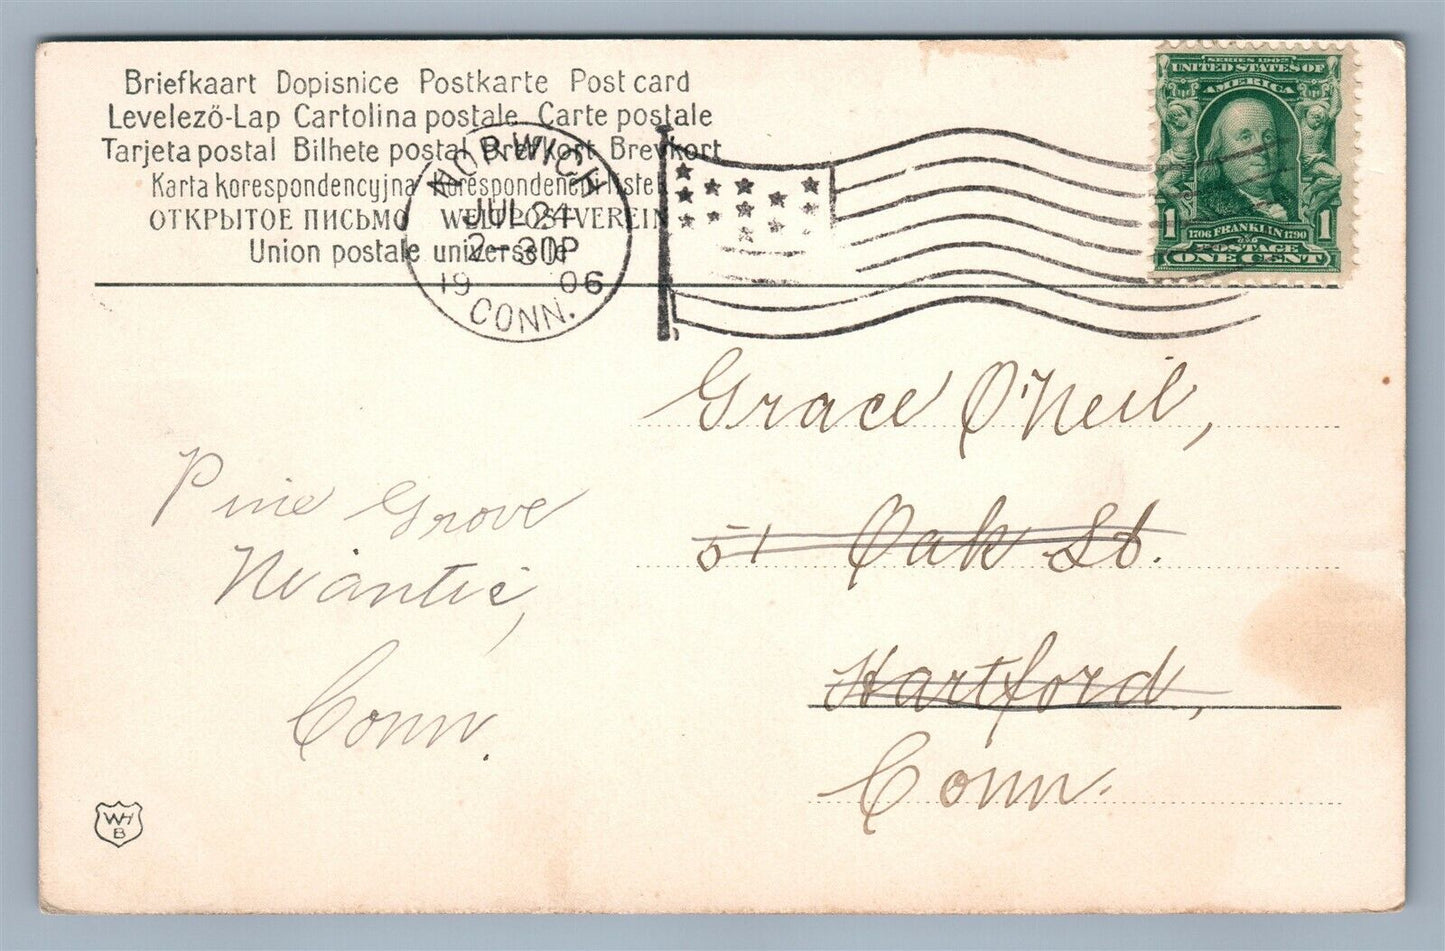 Briefkaart Dopisnice Postkarte Post card
Levelező-Lap Cartolina postale Carte postale
Tarjeta postal Bilhete postal Brevkort Brevkort
Karta korespondencyjna Korespondenční listek
ОТКРЫТОЕ ПИСЬМО WELTPOSTVEREIN
Union postale universelle
NORWICH
JUL 24
2-30P
1906
CONN.
SERIES 1902
UNITED STATES OF
AMERICA
1 1706 FRANKLIN 1790 1
POSTAGE
ONE CENT
Grace O'Neil,
51 Oak St.
Hartford,
Conn.
Pine Grove
Niantic,
Conn.
WH
B